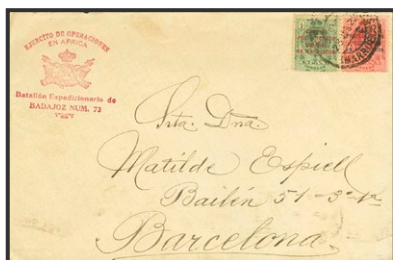 EJERCITO DE OPERACIONES
EN AFRICA
Batallón Expedicionario de
BADAJOZ NUM. 73
Srta. Dna.
Matilde Espiell
Bailén 51-3º-1ª
Barcelona